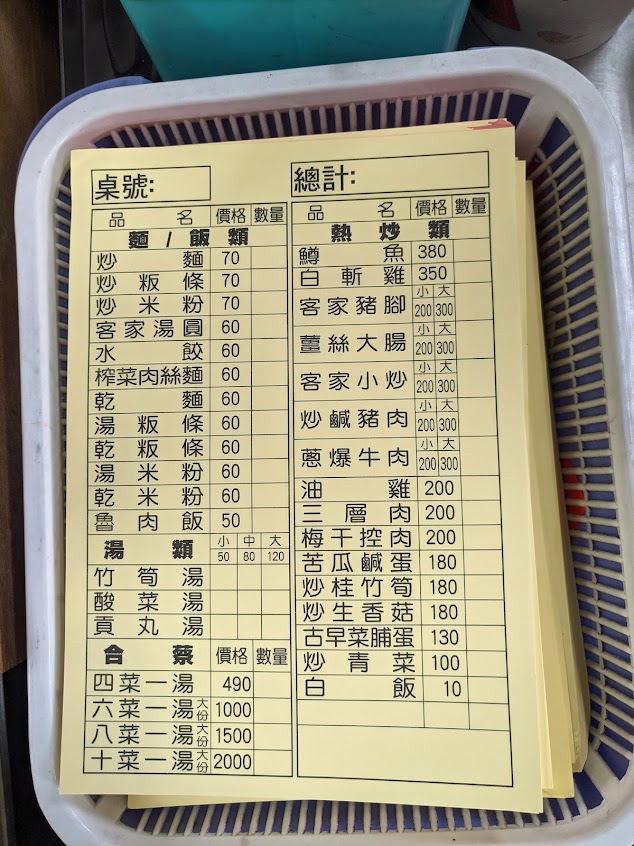 桌號:
品名 價格 數量
麵/飯類
炒麵 70
炒粄條 70
炒米粉 70
客家湯圓 60
水餃 60
榨菜肉絲麵 60
乾麵 60
湯粄條 60
乾粄條 60
湯米粉 60
乾米粉 60
魯肉飯 50
湯類 小 中 大
50 80 120
竹筍湯
酸菜湯
貢丸湯
合蔡 價格 數量
四菜一湯 490
六菜一湯 大份 1000
八菜一湯 大份 1500
十菜一湯 大份 2000
總計:
品名 價格 數量
熱炒類
鱒魚 380
白斬雞 350
客家豬腳 小 大
200 300
薑絲大腸 小 大
200 300
客家小炒 小 大
200 300
炒鹹豬肉 小 大
200 300
蔥爆牛肉 小 大
200 300
油雞 200
三層肉 200
梅干控肉 200
苦瓜鹹蛋 180
炒桂竹筍 180
炒生香菇 180
古早菜脯蛋 130
炒青菜 100
白飯 10